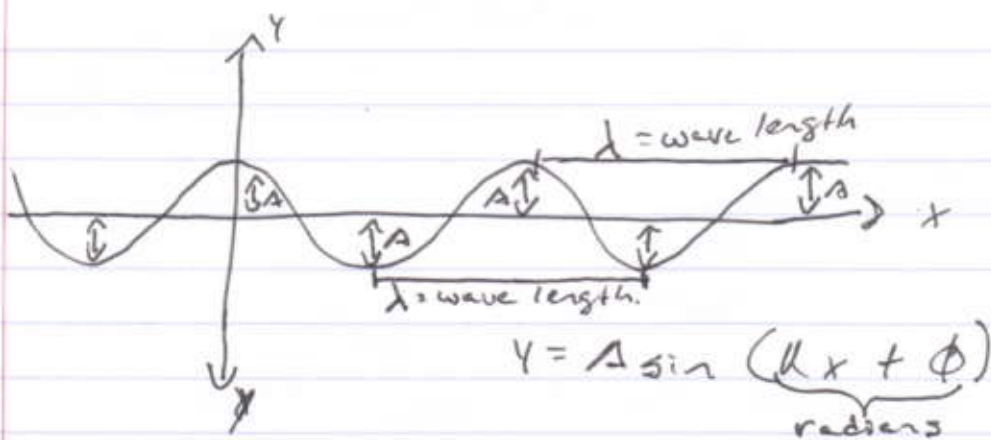 Y
λ = wave length
A
A
A
A
x
λ = wave length.
Y = A sin (kx + φ)
radians